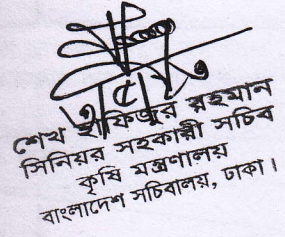 শেখ হাফিজুর রহমান
সিনিয়র সহকারী সচিব
কৃষি মন্ত্রণালয়
বাংলাদেশ সচিবালয়, ঢাকা।